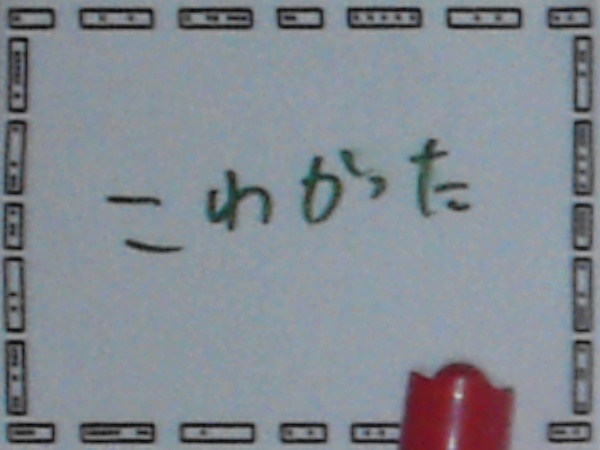 こわかった